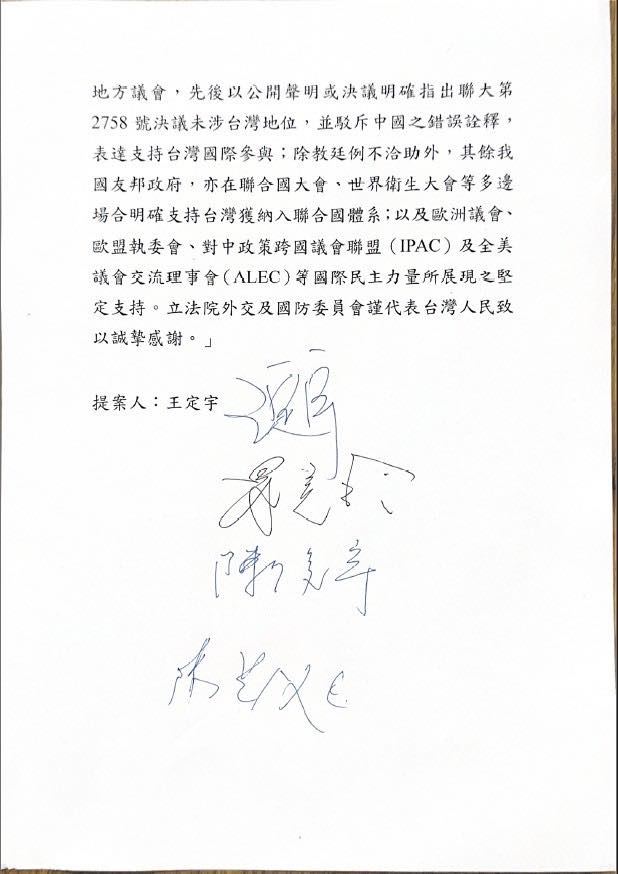 地方議會，先後以公開聲明或決議明確指出聯大第
2758 號決議未涉台灣地位，並駁斥中國之錯誤詮釋，
表達支持台灣國際參與；除教廷例不洽助外，其餘我
國友邦政府，亦在聯合國大會、世界衛生大會等多邊
場合明確支持台灣獲納入聯合國體系；以及歐洲議會、
歐盟執委會、對中政策跨國議會聯盟（IPAC）及全美
議會交流理事會（ALEC）等國際民主力量所展現之堅
定支持。立法院外交及國防委員會謹代表台灣人民致
以誠摯感謝。」
提案人：王定宇